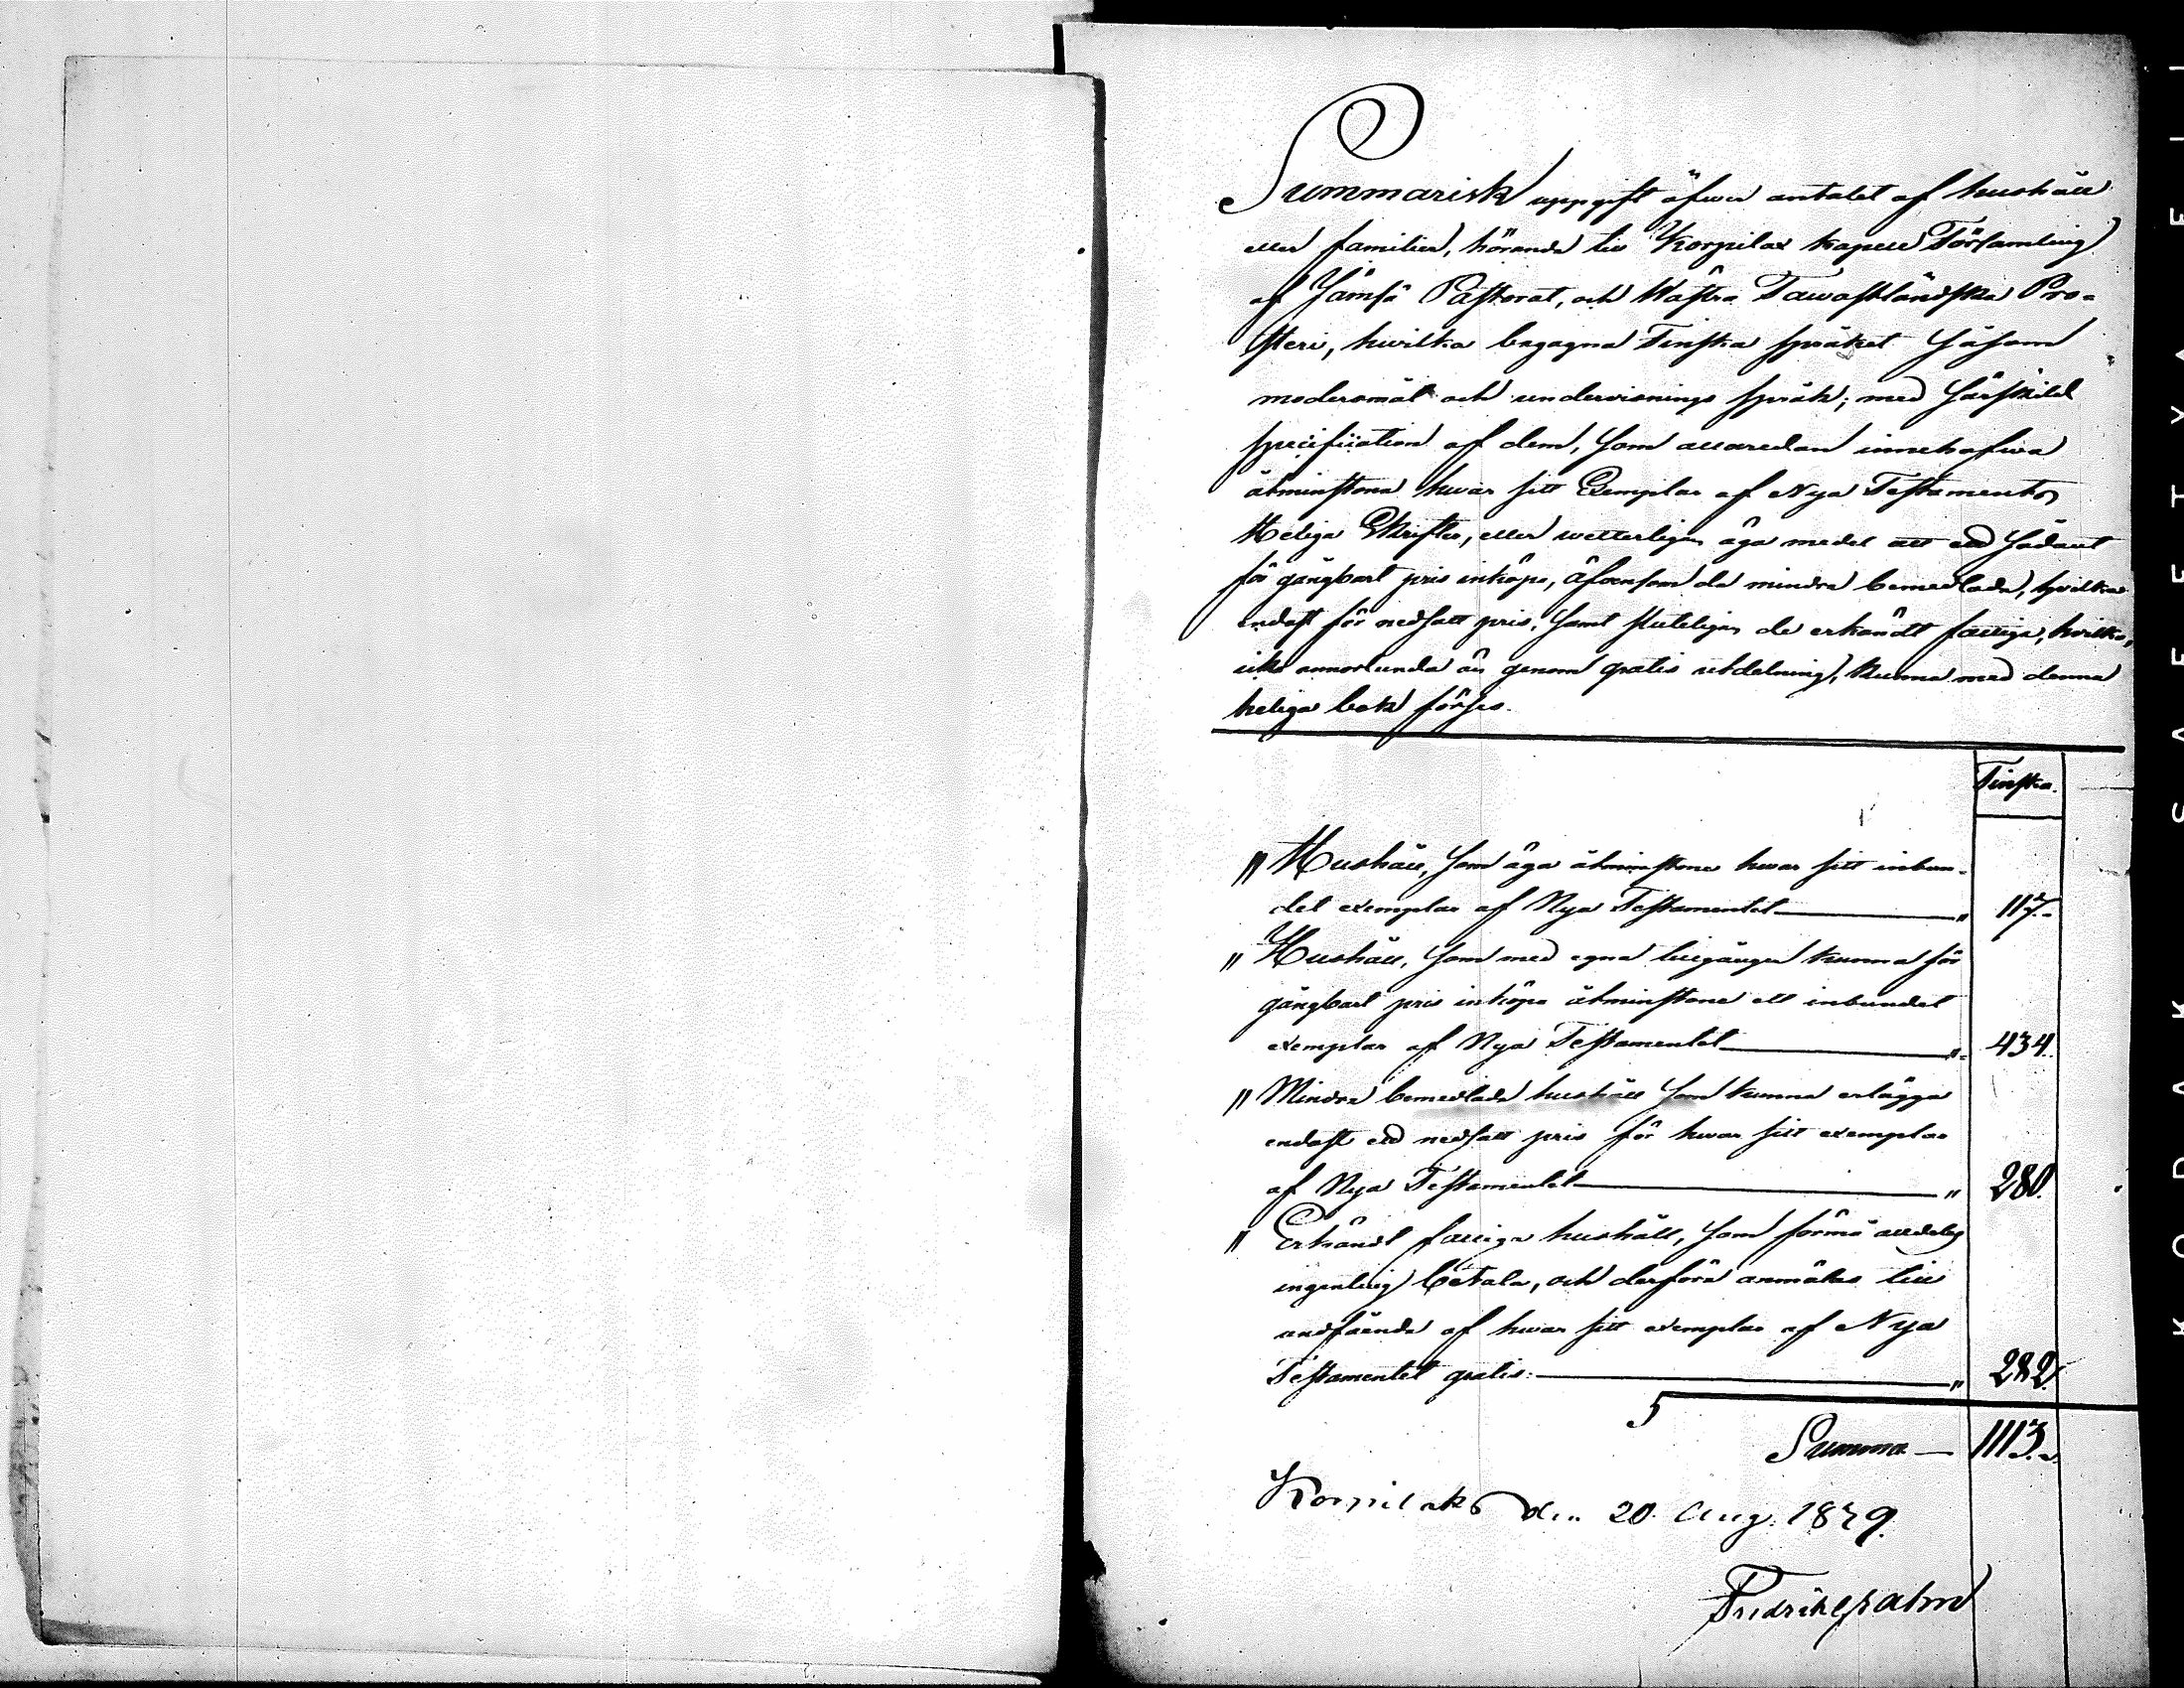 Summarisk uppgift öfwer antalet af hushåll
eller familier, hörande till Korpilax kapell Församling
af Jämsä Pastorat, och Wästra Tawastländska Pro-
steri, hwilka begagna Finska språket såsom
modersmål och undervisnings språk; med särskild
specification af dem, som allaredan innehafwa
åtminstone hwar sitt Exemplar af Nya Testamentes
Heliga Skrifter, eller wetterligen äga medel att ett sådant
för gångbart pris inköpa, äfvensom de mindre bemedlade, hvilka
endast för nedsatt pris, samt sluteligen de erkändt fattiga, hvilka,
icke annorlunda än genom gratis utdelning, kunna med denna
heliga bok förses.
Finska.
" Hushåll, som äga åtminstone hwar sitt inbun-
det exemplar af Nya Testamentet " 117.
" Hushåll, som med egna tillgångar kunna för
gångbart pris inköpa åtminstone ett inbundet
exemplar af Nya Testamentet " 434.
" Mindre bemedlade hushåll som kunna erlägga
endast ett nedsatt pris för hwar sitt exemplar
af Nya Testamentet " 280.
" Erkändt fattiga hushåll, som förmå alldeles
ingenting betala, och derföre anmäles till
undfående af hwar sitt exemplar af Nya
Testamentet gratis. " 282.
Summa — 1113.
Korpilaks den 20 Aug. 18
KODAK SAFETY